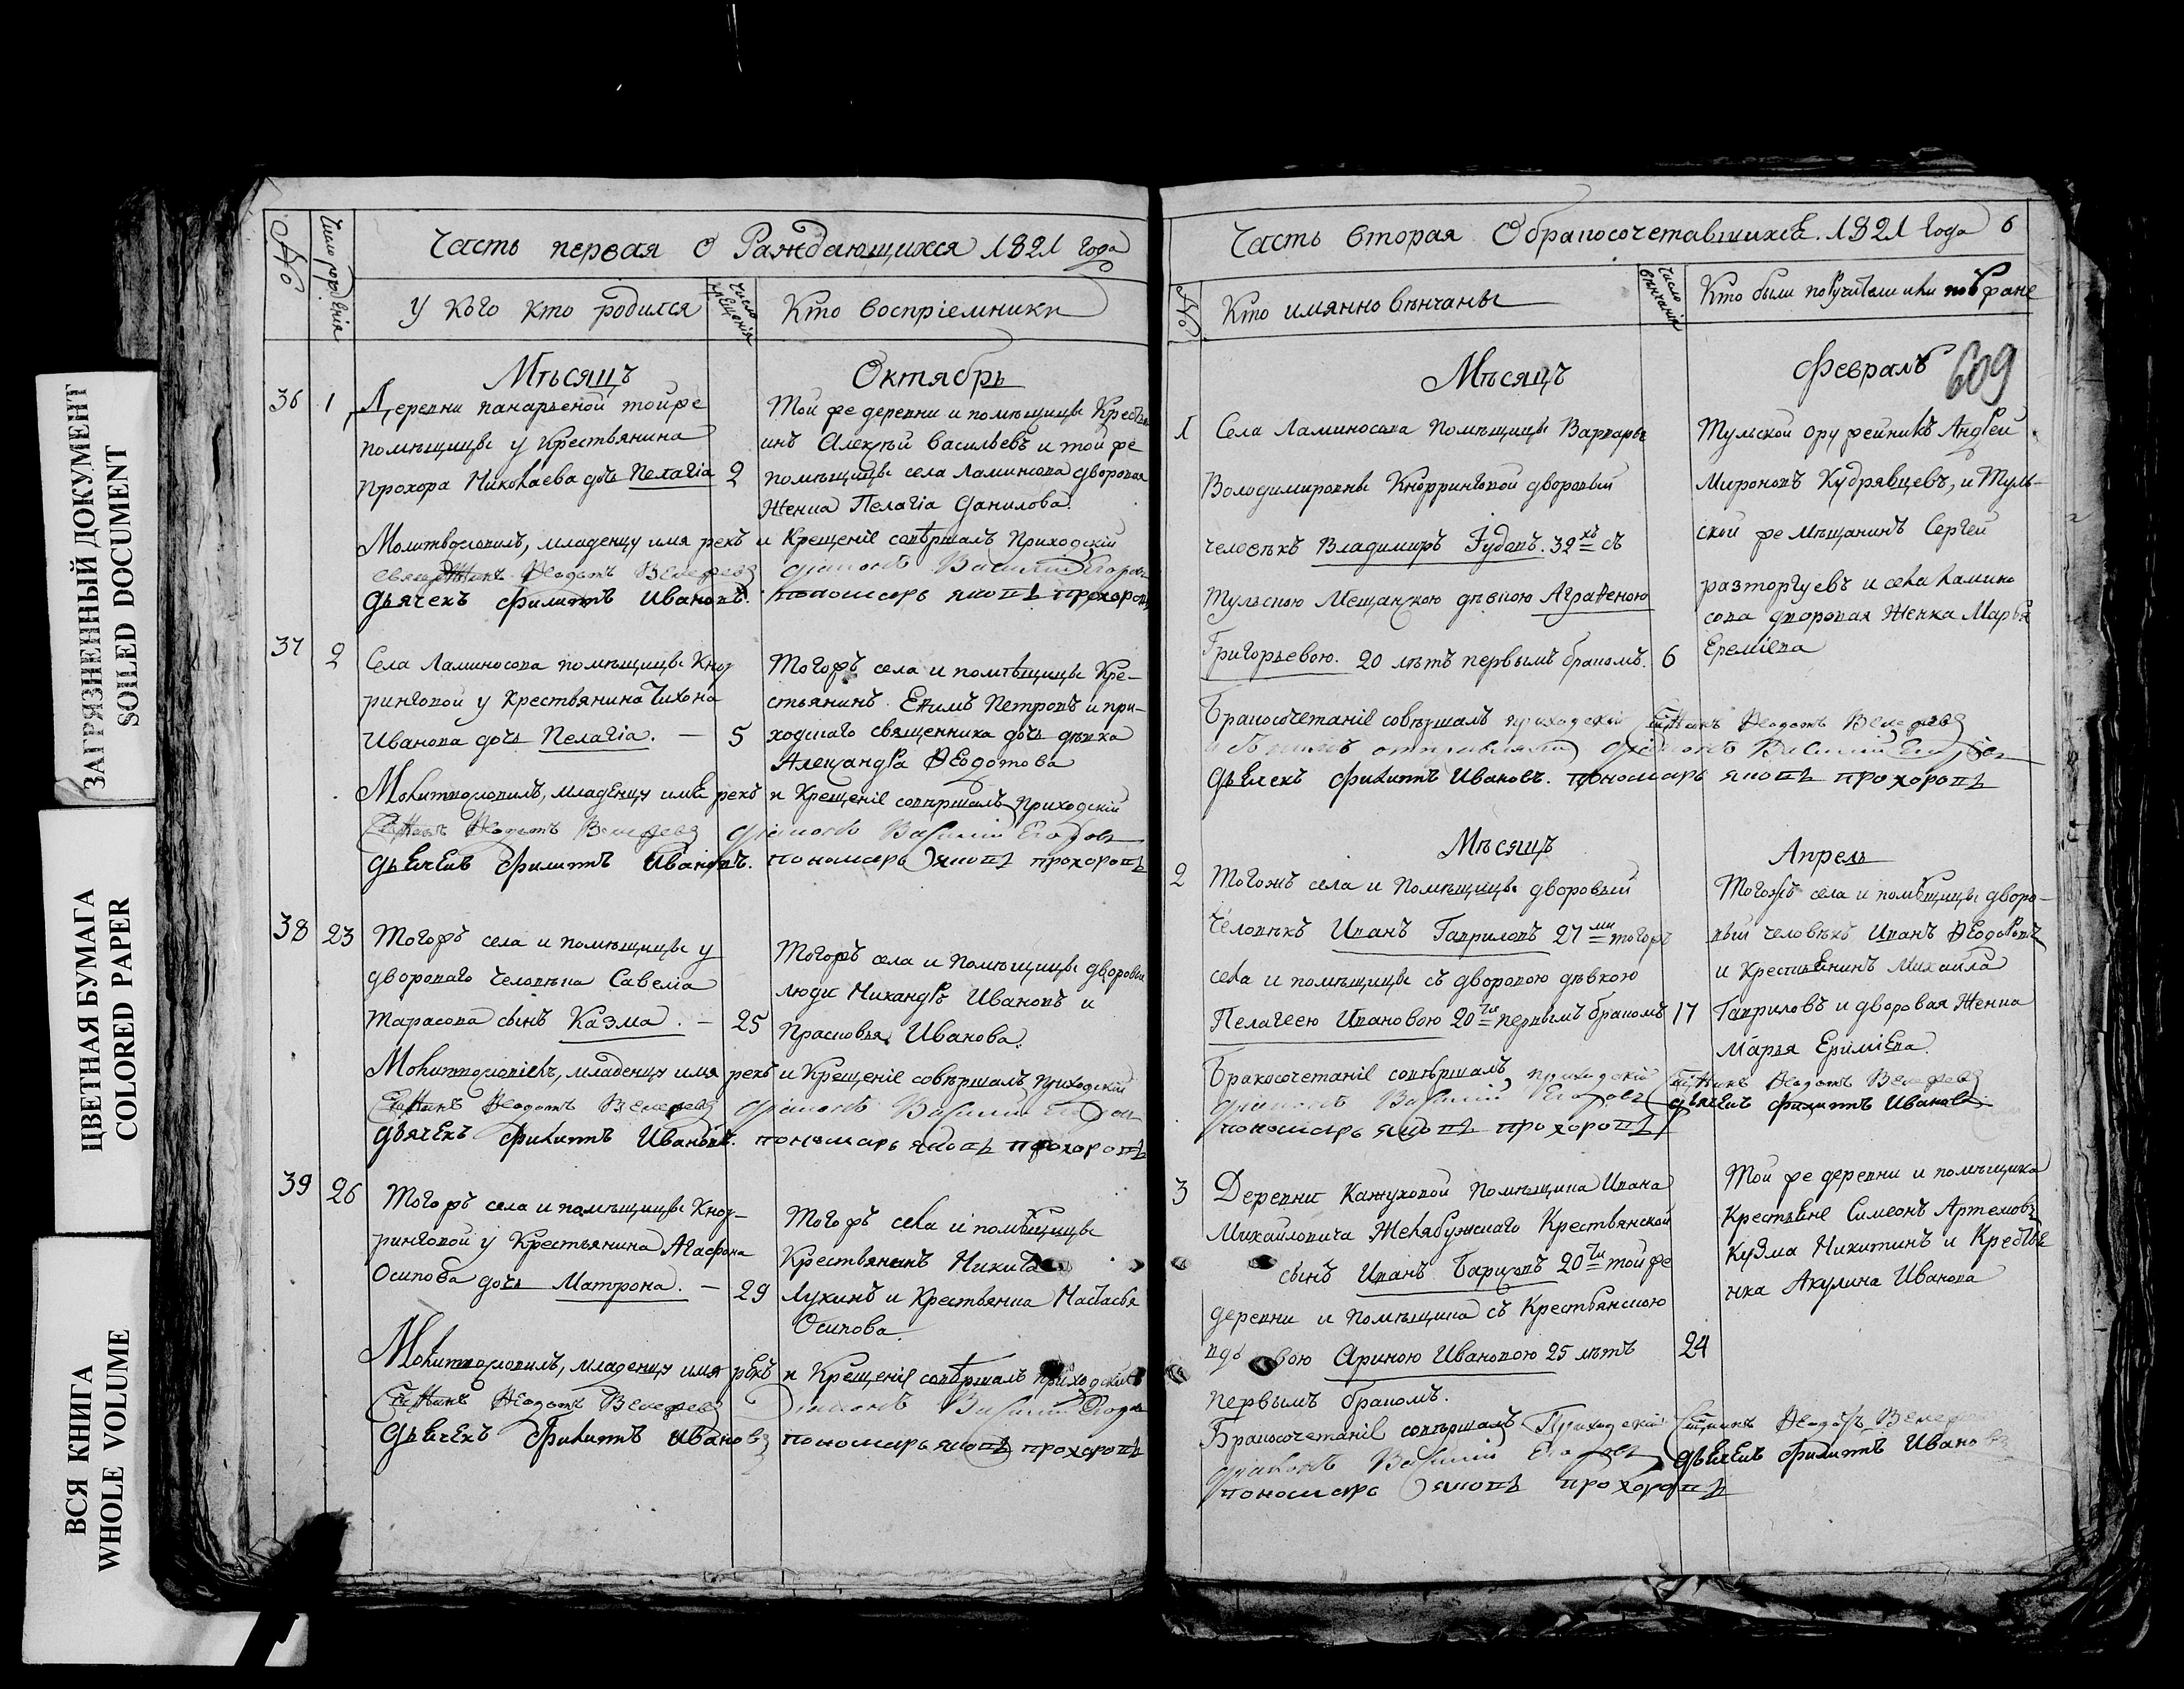 ЗАГРЯЗНЕННЫЙ ДОКУМЕНТ
SOILED DOCUMENT
ЦВЕТНАЯ БУМАГА
COLORED PAPER
ВСЯ КНИГА
WHOLE VOLUME
Часть первая О Раждающихся 1821 года
№
Число рожденія
У кого кто родился
Число крещенія
Кто воспріемники
Мѣсяцъ Октябрь
36 1
помѣщицы у крестьянина
Прохора Николаева дочь Пелагія 2
Той же деревни и помѣщицы Кресть
инъ Алексѣй Васильевъ и той же
помѣщицы села дворовая
женка Пелагіа Данилова.
Молитвословилъ, младенцу имя рекъ и Крещеніе совершалъ Приходскій
Дьячекъ Филиппъ Ивановъ. пономарь Яковъ Прохоровъ
37 2
Села Ламиносова помѣщицы Кнор
ринговой у крестьянина Тихона
Иванова дочь Пелагіа. — 5
Тогожъ села и помѣщицы Кре-
стьянинъ Ефимъ Петровъ и при-
ходскаго священника дочь дѣвка
Александра Ѳеодотова
Молитвословилъ, младенцу имя рекъ и Крещеніе совершалъ Приходскій
Дьячекъ Филиппъ Ивановъ. пономарь Яковъ Прохоровъ
38 23
Тогожъ села и помѣщицы у
двороваго человѣка Савелiа
Тарасова сынъ Казма. — 25
Тогожъ села и помѣщицы дворовыи
люди Никандръ Ивановъ и
Прасковья Иванова.
Молитвословилъ, младенцу имя рекъ и Крещеніе совѣршалъ Приходскій
Дьячекъ Филиппъ Ивановъ. пономарь Яковъ Прохоровъ
39 26
Тогожъ села и помѣщицы Кнор-
ринговой у Крестьянина Агафона
Осипова дочь Матрона. — 29
Тогожъ села и помѣщицы
Крестьянинъ Никита
Лукинъ и Крестьянка Настасья
Осипова.
Молитвословилъ, младенцу имя рекъ и Крещеніе совершалъ приходскій
Дьячекъ Филиппъ Ивановъ пономарь Яковъ Прохоровъ
Часть вторая О бракосочетавшихся. 1821 года 6
№
Кто имянно вѣнчаны
Число вѣнчанія
Кто были поручители
Мѣсяцъ Февраль
609
1 Села Ламиносова Помѣщицы Варвары
Володимировны Кнорринговой дворовый
человѣкъ Владимиръ 32хъ съ
Тульскою Мещанскою дѣвкою Аграѳеною
Григорьевою. 20 лѣтъ первымъ бракомъ. 6
Тульской оружейникъ Андрей
Мироновъ Кудрявцевъ, и Туль-
ской же мѣщанинъ Сергей
Разторгуевъ и села Ламино
сова дворовая женка Марья
Еремiева
Бракосочетаніе совѣршалъ приходскій
Дьячекъ Филиппъ Ивановъ. пономарь Яковъ Прохоровъ
Мѣсяцъ Апрель
2 Тогожъ села и Помѣщицы дворовый
человѣкъ Иванъ Гавриловъ 27ми тогожъ
села и помѣщицы съ дворовою дѣвкою
Пелагеею Ивановою 20ти первымъ бракомъ 17
Тогожъ села и помѣщицы дворо-
вый человѣкъ Иванъ Ѳеодоровъ
и Крестьянинъ Михайла
Гавриловъ и дворовая женка
Марья Еримiева.
Бракосочетаніе совѣршалъ приходскій
дьячекъ Филиппъ Ивановъ
пономарь Яковъ Прохоровъ
3 Деревни Кажуховой Помѣщика Ивана
Михайловича Желябужскаго Крестьянской
сынъ Иванъ 20ти той же
деревни и Помѣщика съ Крестьянскою
Ариною Ивановою 25 лѣтъ 24
первымъ бракомъ.
Той же деревни и помѣщика
Крестьяне Симеонъ Артемовъ
Кузма Никитинъ и Крестья
нка Акулина Иванова
Бракосочетаніе совѣршалъ Приходскій
дьячекъ Филиппъ Ивановъ
пономарь Яковъ Прохоровъ